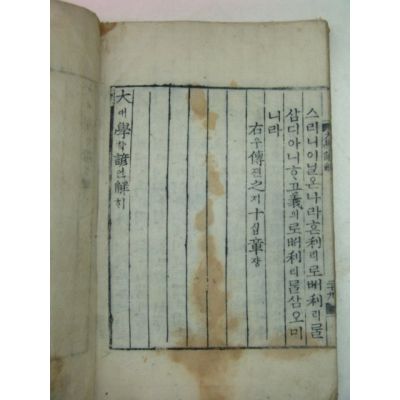 스리니이닐온나라흔利리로ᄡᅥ利리를
삼디아니ᄒᆞ고義의로ᄡᅥ利리를삼오미
니라
右우傳뎐之지十십章쟝
大대學학諺언解ᄒᆡ